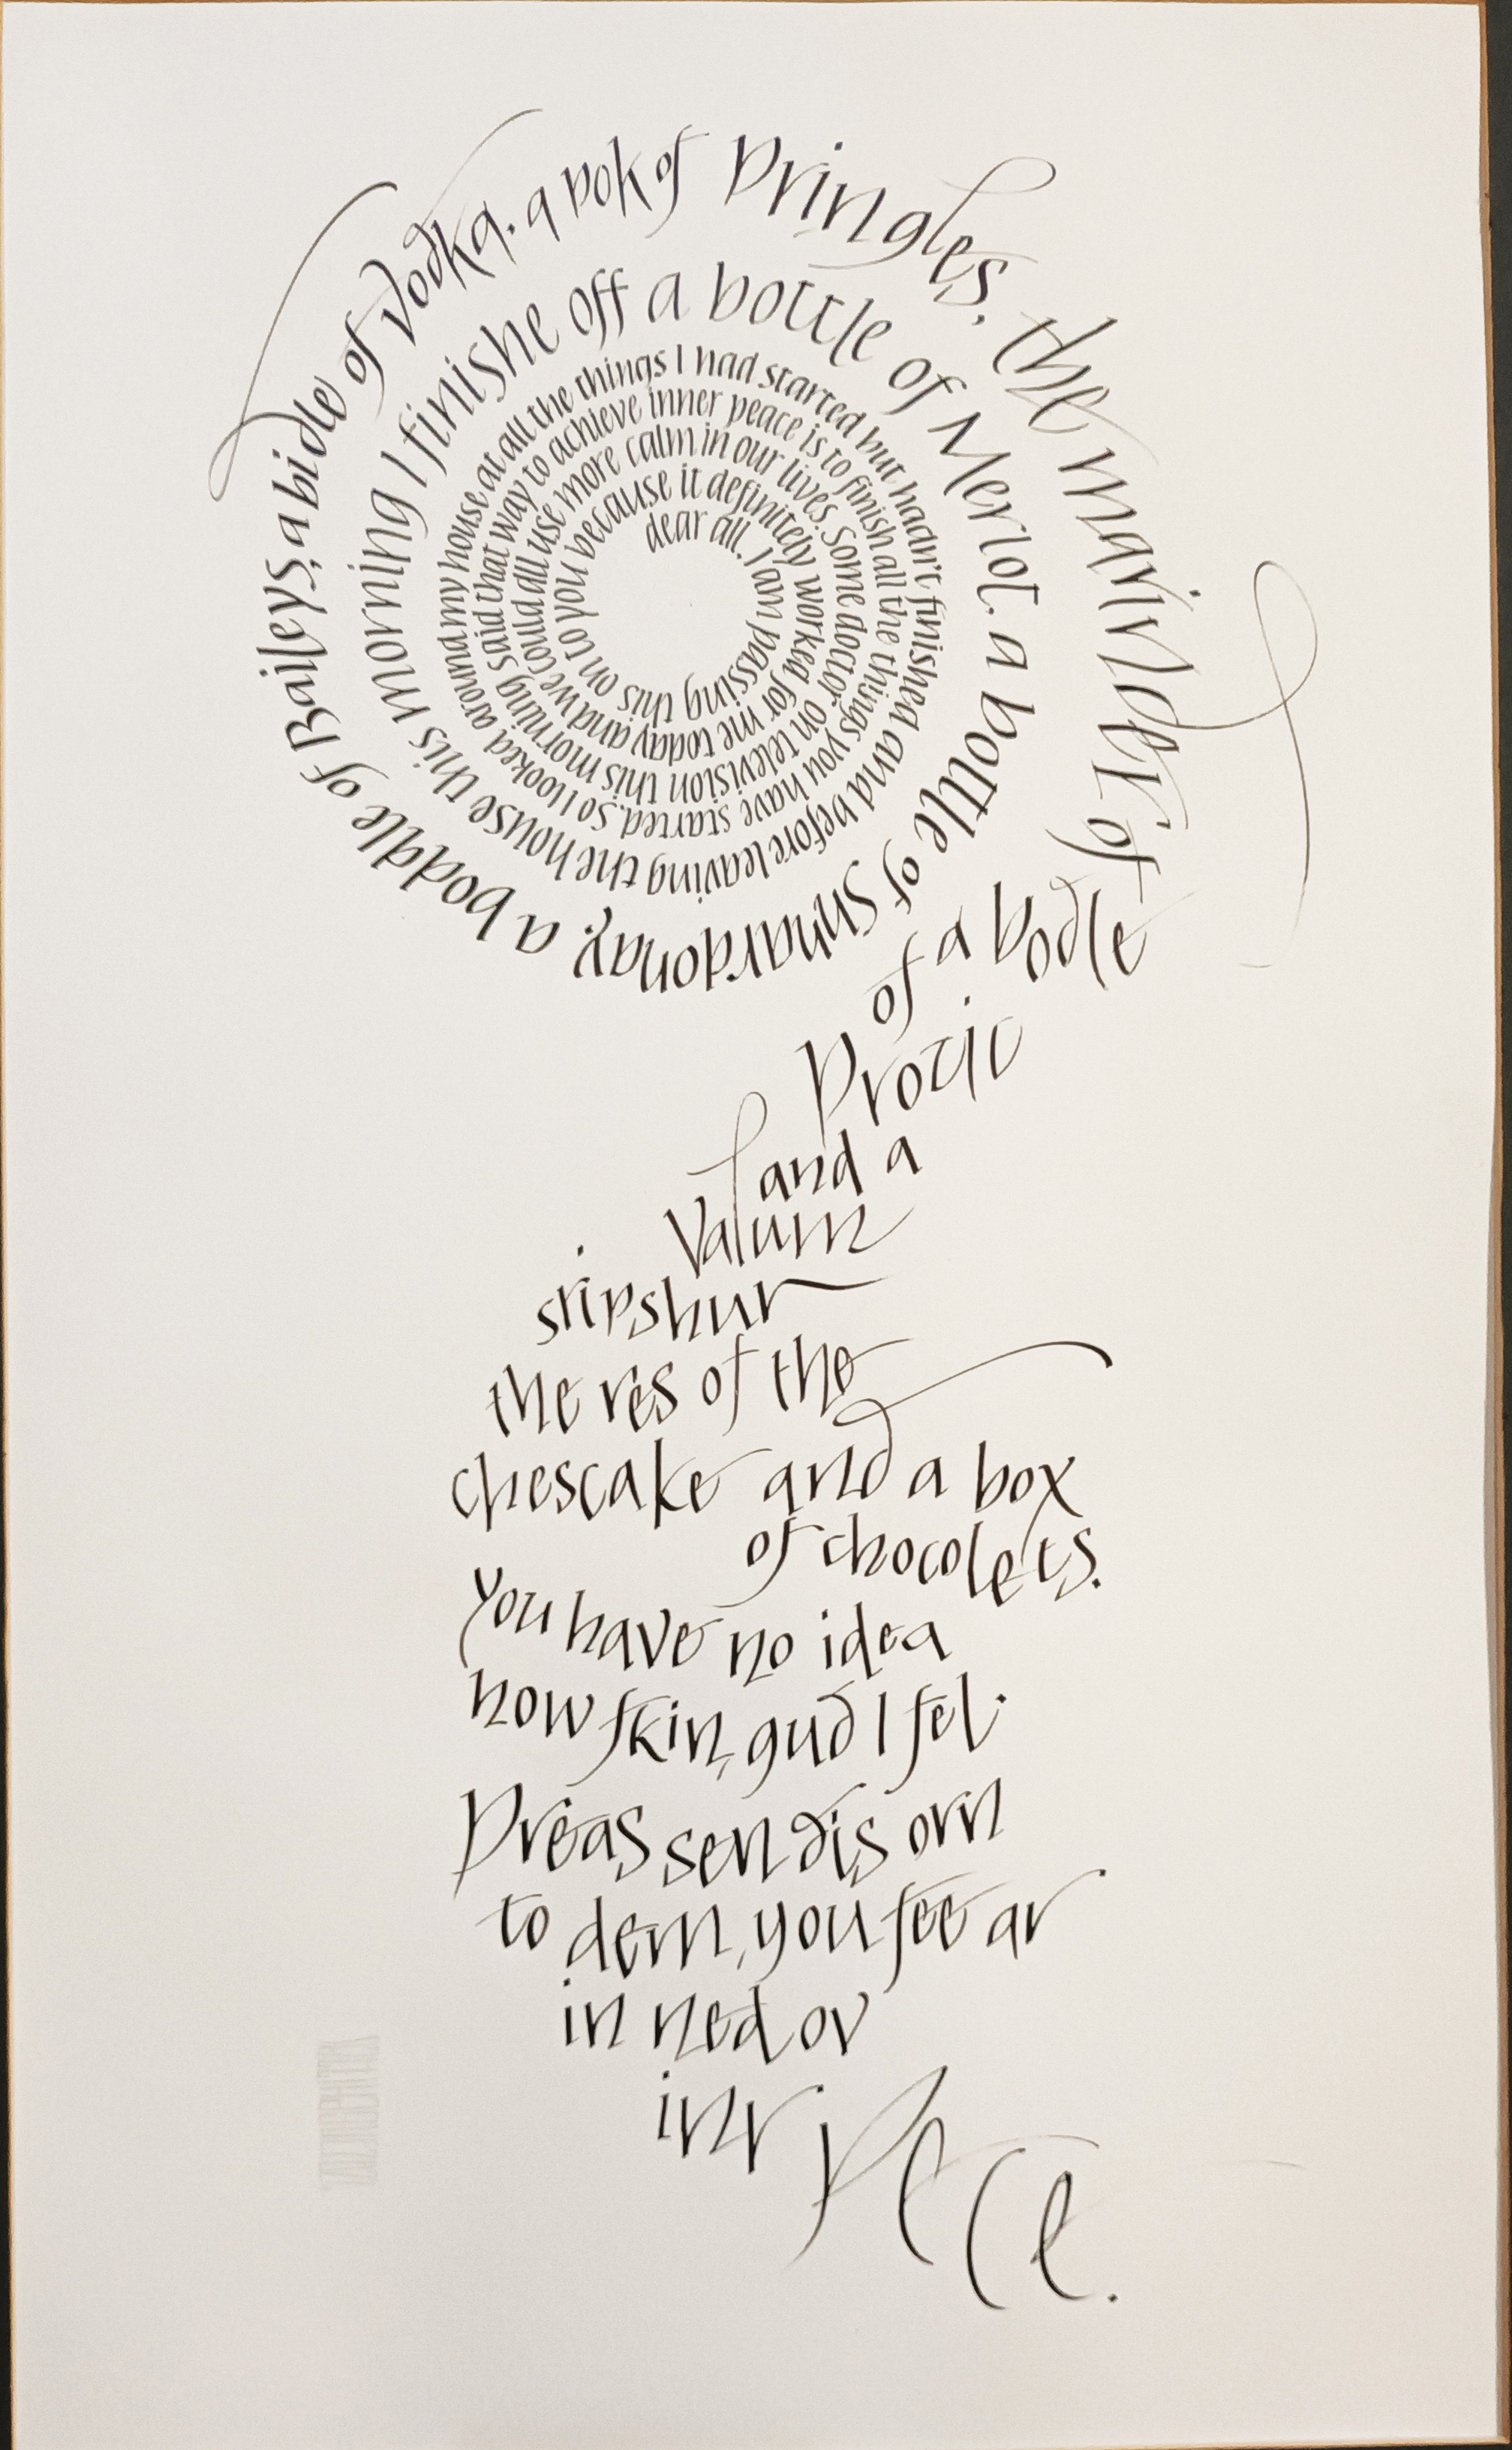 dear all. I am passing this on to you because it definitely worked for me today and we could all use more calm in our lives. Some doctor on television this morning said that way to achieve inner peace is to finish all the things you have started. So I looked around my house at all the things I had started but hadn't finished and before leaving the house this morning I finishe off a bottle of Merlot. a bottle of Shhardonay. a boddle of Baileys. a bidle of vodka. a pok of Pringles. the mainder of
of a bodle
Prozic
and a
Valum
sripshur
the res of the
chescake and a box
of chocolets.
You have no idea
how fkin, gud I fel.
Preas sen dis orn
to dem, you fee ar
in ned ov
inr
pece.